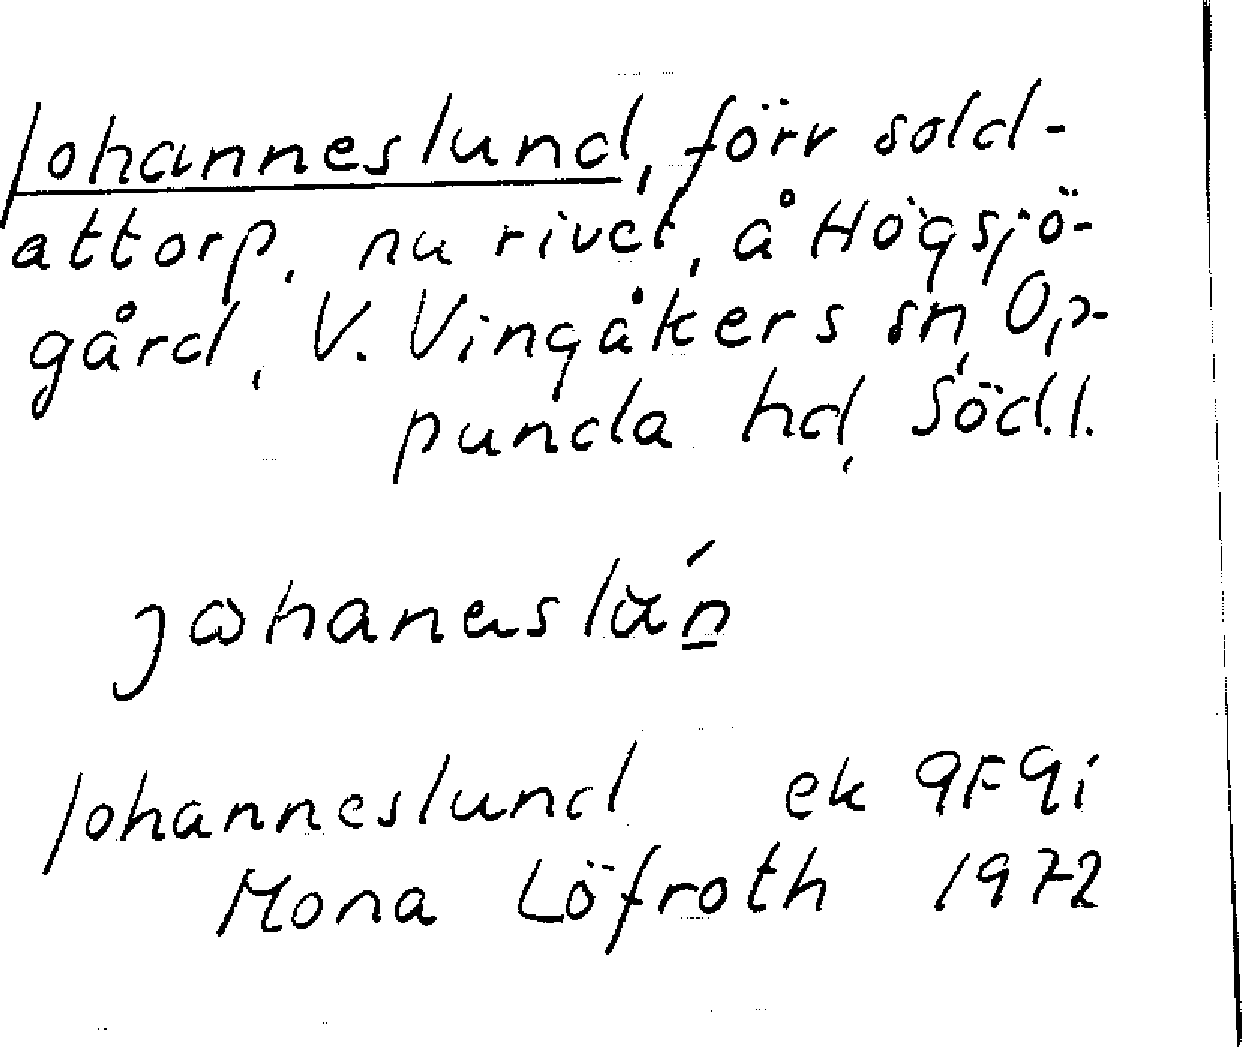 Johanneslund, förr sold-
attorp, nu rivet, å Högsjö-
gård, V. Vingåkers sn, Op-
punda hd, Söd.l.
Johanneslund ek 9F9i
Mona Löfroth 1972